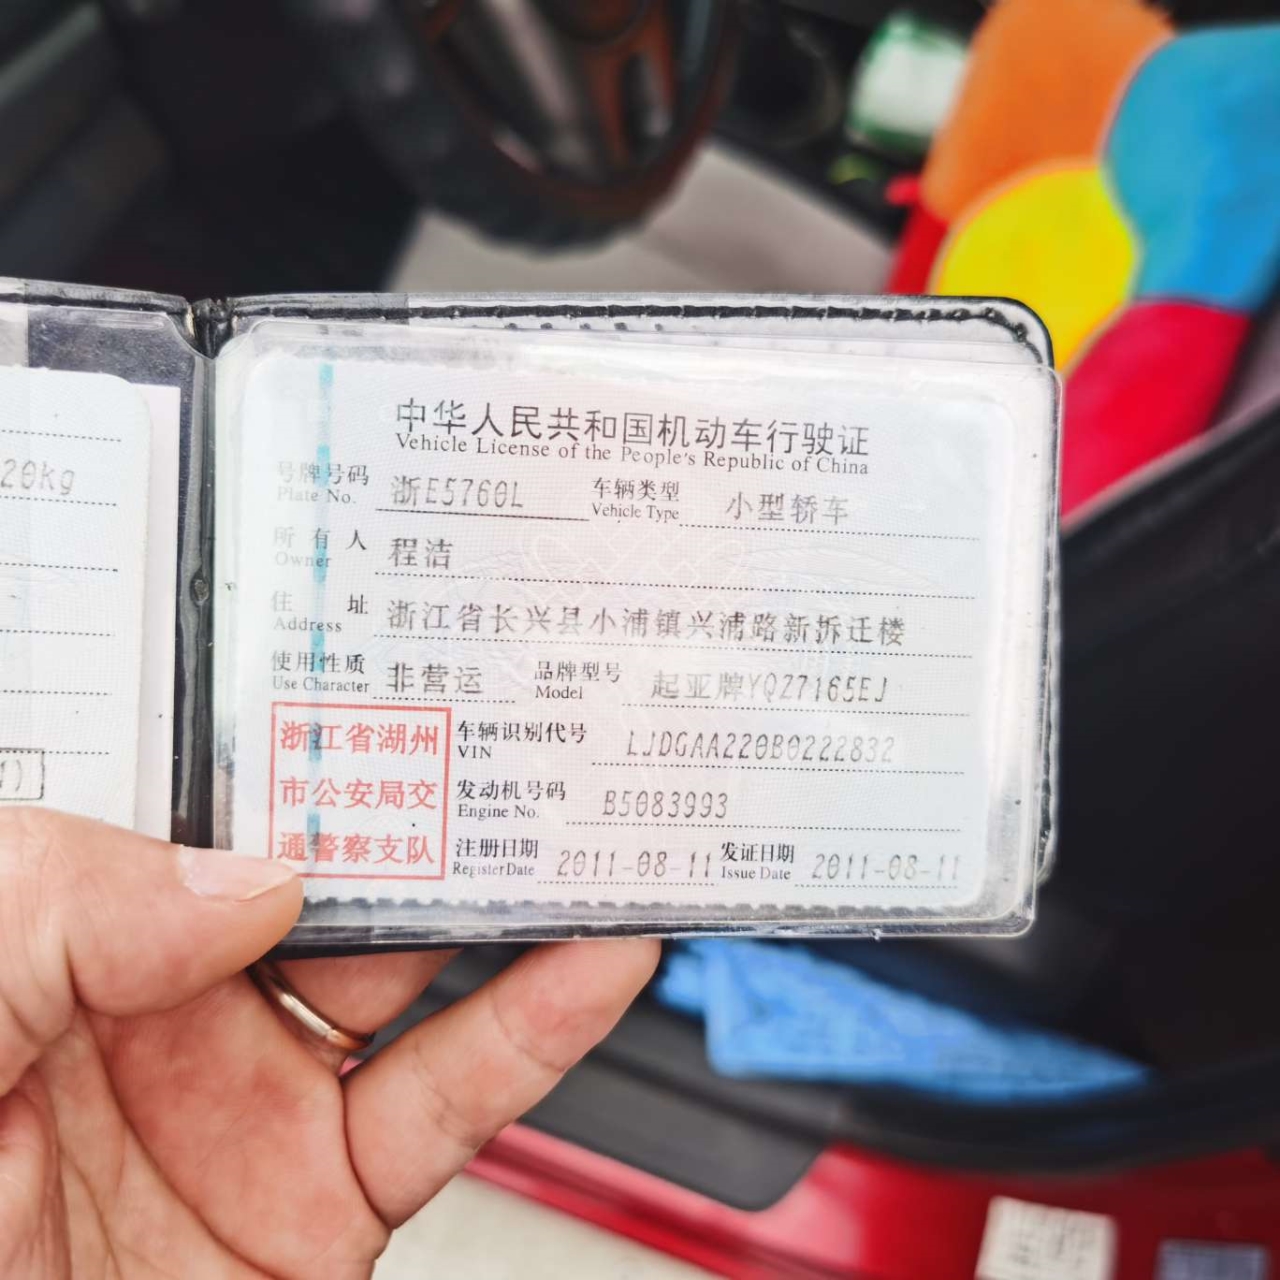 20kg
中华人民共和国机动车行驶证
Vehicle License of the People's Republic of China
号牌号码 浙E5760L 车辆类型 小型轿车
Plate No. Vehicle Type
所有人 程洁
Owner
住址 浙江省长兴县小浦镇兴浦路新拆迁楼
Address
使用性质 非营运 品牌型号 起亚牌YQZ7165EJ
Use Character Model
浙江省湖州
市公安局交
通警察支队
车辆识别代号 LJDGAA220B0222832
VIN
发动机号码 B5083993
Engine No.
注册日期 2011-08-11 发证日期 2011-08-11
Register Date Issue Date